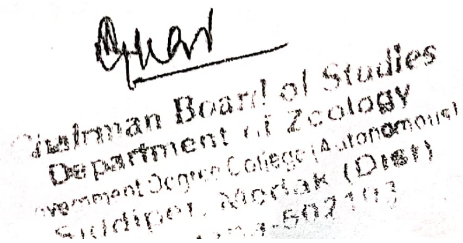 Chairman Board of Studies
Department of Zoology
Government Degree College (Autonomous)
Siddipet, Medak (Dist)
502103